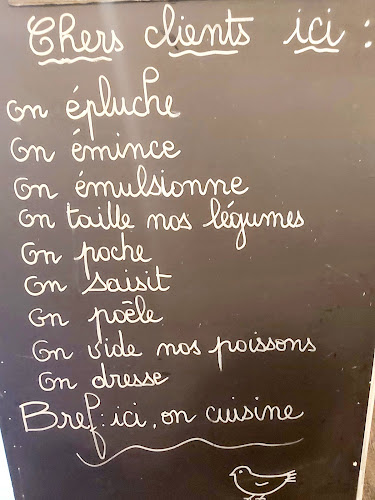 Chers clients ici :
On épluche
On émince
On émulsionne
On taille nos légumes
On poche
On saisit
On poêle
On vide nos poissons
On dresse
Bref : ici, on cuisine